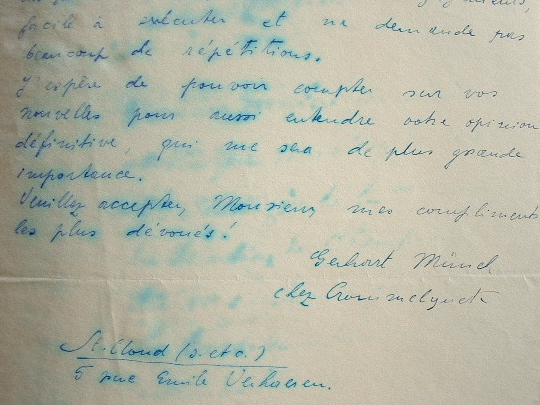 facile à exécuter et ne demande pas
beaucoup de répétitions.
J'espère de pouvoir compter sur vos
nouvelles pour aussi entendre votre opinion
définitive, qui me sera de plus grande
importance.
Veuillez accepter, Monsieur, mes compliments
les plus dévoués!
Gerhart Münch
chez Crommelynck
St. Cloud (S. et O.)
5 rue Emile Verhaeren.